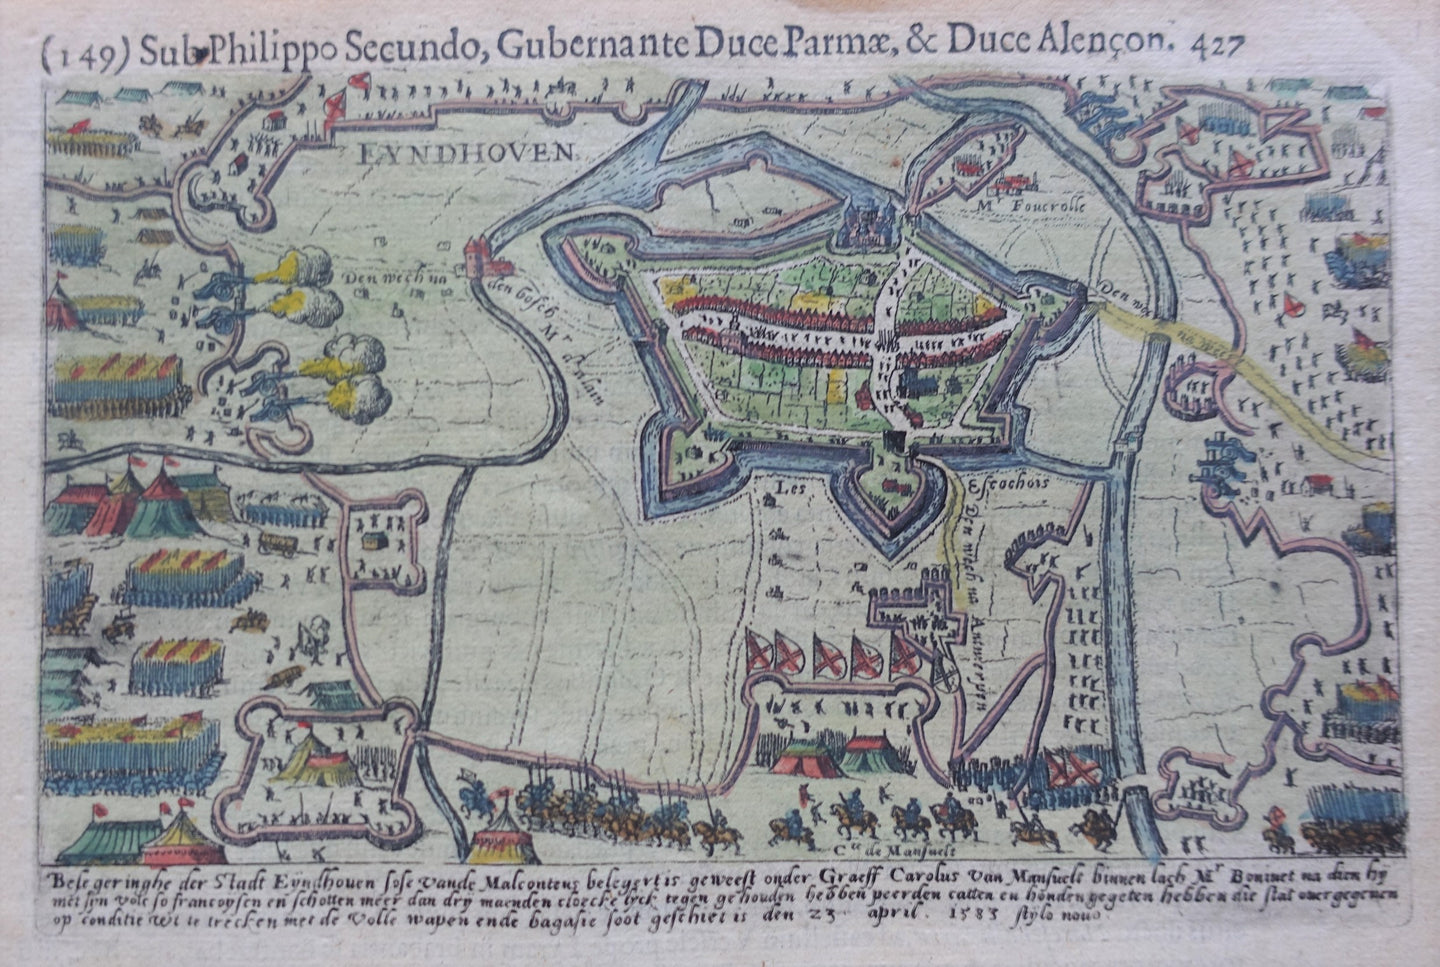 (149) Sub Philippo Secundo, Gubernante Duce Parmæ, & Duce Alençon. 427
EYNDHOVEN.
Mr Foucrolle
Den wech na
den bosch
Mr dalain
Den we
na
Les
Escochois
Den wech na Antwerpen
Cte de Mansuelt
Belegeringhe der Stadt Eyndhouen sose vande Malcontens belegert is geweest onder Graeff Carolus van Mansuelt binnen lach Mr Boniuet na dien hy
met syn volc so francoysen en schotten meer dan dry maenden cloeckelyck tegen gehouden hebben peerden catten en honden gegeten hebben die stat ouergegeuen
op conditie wt te trecken met de volle wapen ende bagasie soot geschiet is den 23 april. 1583 stylo nouo.